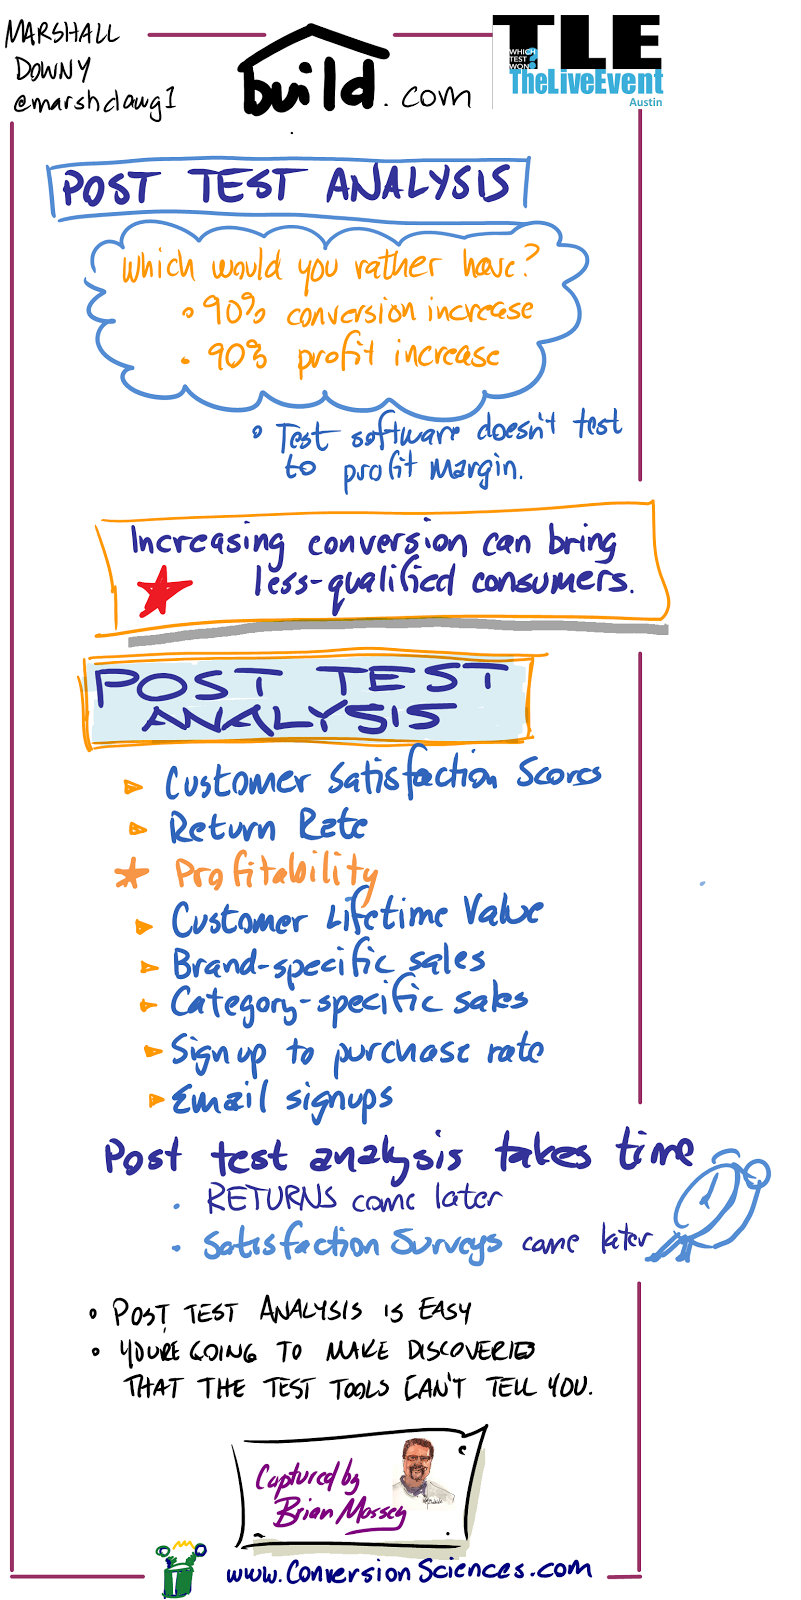 MARSHALL
DOWNY
@marshdawg1
build.com
WHICH
TEST
WON?
TLE
TheLiveEvent
Austin
POST TEST ANALYSIS
Which would you rather have?
90% conversion increase
90% profit increase
Test software doesn't test
to profit margin.
Increasing conversion can bring
less-qualified consumers.
POST TEST
ANALYSIS
Customer Satisfaction Scores
Return Rate
Profitability
Customer Lifetime Value
Brand-specific sales
Category-specific sales
Sign up to purchase rate
Email signups
Post test analysis takes time
RETURNS come later
Satisfaction Surveys come later
POST TEST ANALYSIS IS EASY
YOU'RE GOING TO MAKE DISCOVERIES
THAT THE TEST TOOLS CAN'T TELL YOU.
Captured by
Brian Massey
www.ConversionSciences.com